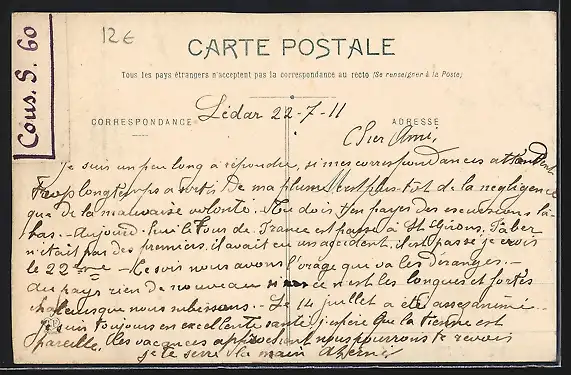 12€
Cous. S. 60
CARTE POSTALE
Tous les pays étrangers n'acceptent pas la correspondance au recto (Se renseigner à la Poste)
CORRESPONDANCE
ADRESSE
Lédar 22-7-11
Cher Ami,
Je suis un peu long à répondre, si mes correspondances attendent
trop longtemps a forti, De ma plume c'est plus tôt de la négligence
que de la mauvaise volonté. - Tu dois t'en payer des excursions là-
bas. - Aujourd'hui le Tour de France est passé à St Girons, Faber
n'était pas des premiers il avait eu un accident, il est passé je crois
le 22ème - Ce soir nous avons l'orage qui va les déranger. -
Au pays rien de nouveau si ce n'est les longues et fortes
chaleurs que nous subissons. - Le 14 juillet a été assez animé -
Je suis toujours en excellente santé, j'espère que la tienne est
pareille, les vacances approchant nous pourrons te revoir
je te serre la main